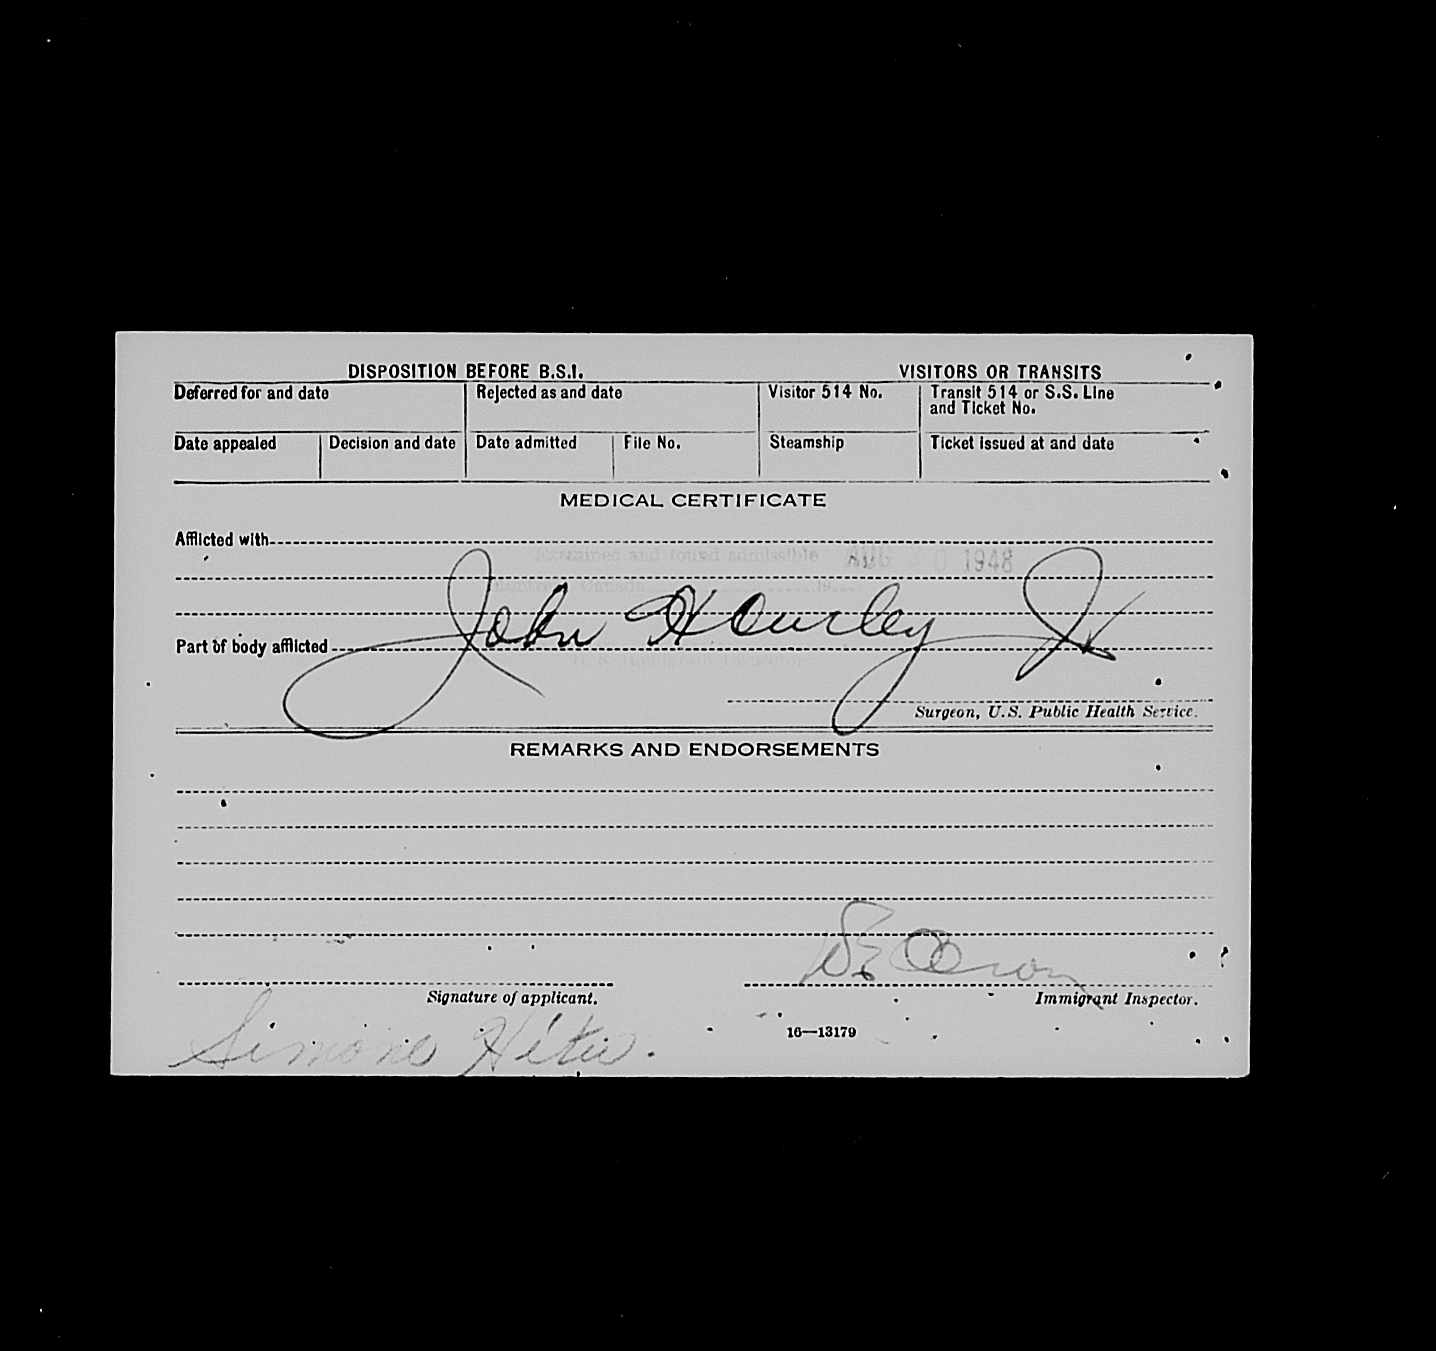 DISPOSITION BEFORE B.S.I. VISITORS OR TRANSITS
Deferred for and date Rejected as and date Visitor 514 No. Transit 514 or S.S. Line and Ticket No.
Date appealed Decision and date Date admitted File No. Steamship Ticket issued at and date
MEDICAL CERTIFICATE
Afflicted with
Examined and found admissible AUG 1948
John Hourley Jr
Part of body afflicted
Surgeon, U.S. Public Health Service.
REMARKS AND ENDORSEMENTS
Signature of applicant. Immigrant Inspector.
Simone
16—13179